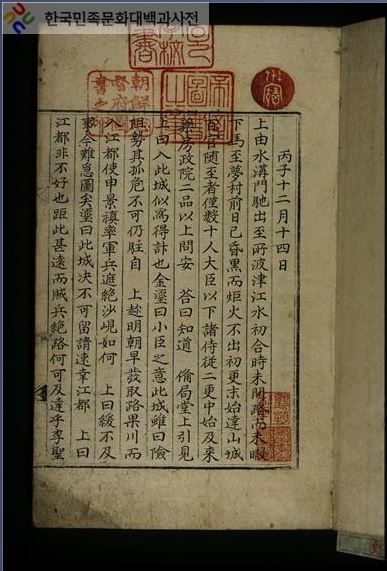 한국민족문화대백과사전
丙子十二月十四日
上由水溝門馳出至所波津江水初合時未開路而未暇
下馬至夢村前日已昏黑而炬火不出初更末始達山城
百官随至者僅数十人大臣以下諸侍從二更中始及来
藥房政院二品以上問安 答曰知道 備局堂上引見
上曰入此城似爲得計也金瑬曰小臣之意此城雖曰險
阻勢其孤危不可仍駐自 上趂明朝早發取路果川而
入江都使申景禛率軍兵遮絶沙峴如何 上曰緩不及
事今難爲圖矣瑬曰此城决不可留請速幸江都 上曰
江都非不好也距此甚遠而賊兵絶路何可及達乎李聖